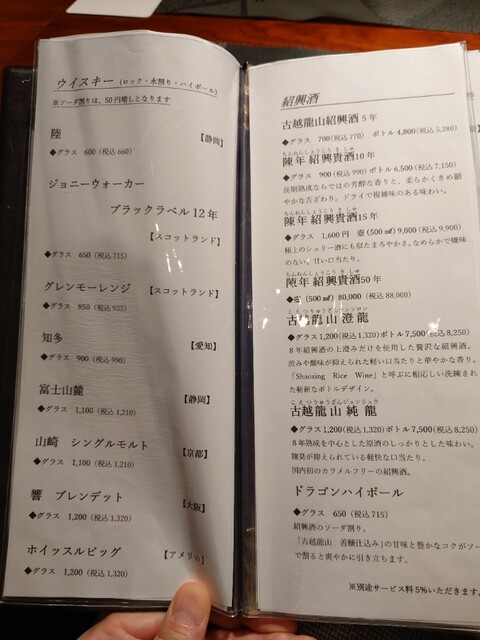 ウイスキー (ロック・水割り・ハイボール)
※ソーダ割りは、50円増しとなります
陸 【静岡】
◆グラス 600 (税込 660)
ジョニーウォーカー
ブラックラベル 12年
【スコットランド】
◆グラス 650 (税込 715)
グレンモーレンジ 【スコットランド】
◆グラス 850 (税込 935)
知多 【愛知】
◆グラス 900 (税込 990)
富士山麓 【静岡】
◆グラス 1,100 (税込 1,210)
山崎 シングルモルト 【京都】
◆グラス 1,100 (税込 1,210)
響 ブレンデット 【大阪】
◆グラス 1,200 (税込 1,320)
ホイッスルピッグ 【アメリカ】
◆グラス 1,200 (税込 1,320)
紹興酒
古越龍山紹興酒 5年
◆グラス 700(税込 770) ボトル 4,800(税込 5,280)
ちんねんしょうこう き しゅ
陳年 紹興貴酒10年
◆グラス 900(税込 990) ボトル 6,500 (税込 7,150)
長期熟成ならではの芳醇な香りと、柔らかくきめ細
やかな舌ざわり。ドライで複雑味のある味わい。
ちんねんしょうこう き しゅ
陳年 紹興貴酒15年
◆グラス 1,600円 壺 (500㎖) 9,000 (税込 9,900)
極上のシェリー酒にも似たまろやかさ。なめらかで嫌味
のない、甘い口当たり。
ちんねんしょうこう き しゅ
陳年 紹興貴酒50年
◆壺 (500㎖) 80,000 (税込 88,000)
こ えつりゅうざんチェンロン
古越龍山澄龍
◆グラス1,200(税込1,320)ボトル7,500(税込8,250)
8年紹興酒の上澄みだけを使用した贅沢な紹興酒。
渋みや酸味が抑えられた軽い口当たりと華やかな香り。
「Shaoxing Rice Wine」と呼ぶに相応しい洗練され
た斬新なボトルデザイン。
こ えつりゅうざんジュンリュウ
古越龍山純龍
◆グラス1,200(税込1,320)ボトル7,500(税込8,250)
8年熟成を中心とした原酒のしっかりとした味わい。
麹臭が抑えられている軽快な口当たり。
国内初のカラメルフリーの紹興酒。
ドラゴンハイボール
◆グラス 650 (税込 715)
紹興酒のソーダ割り。
「古越龍山 善醸仕込み」の甘味と豊かなコクがソーダ
で割ると爽やかに引き立ちます。
※別途サービス料 5%いただきます。